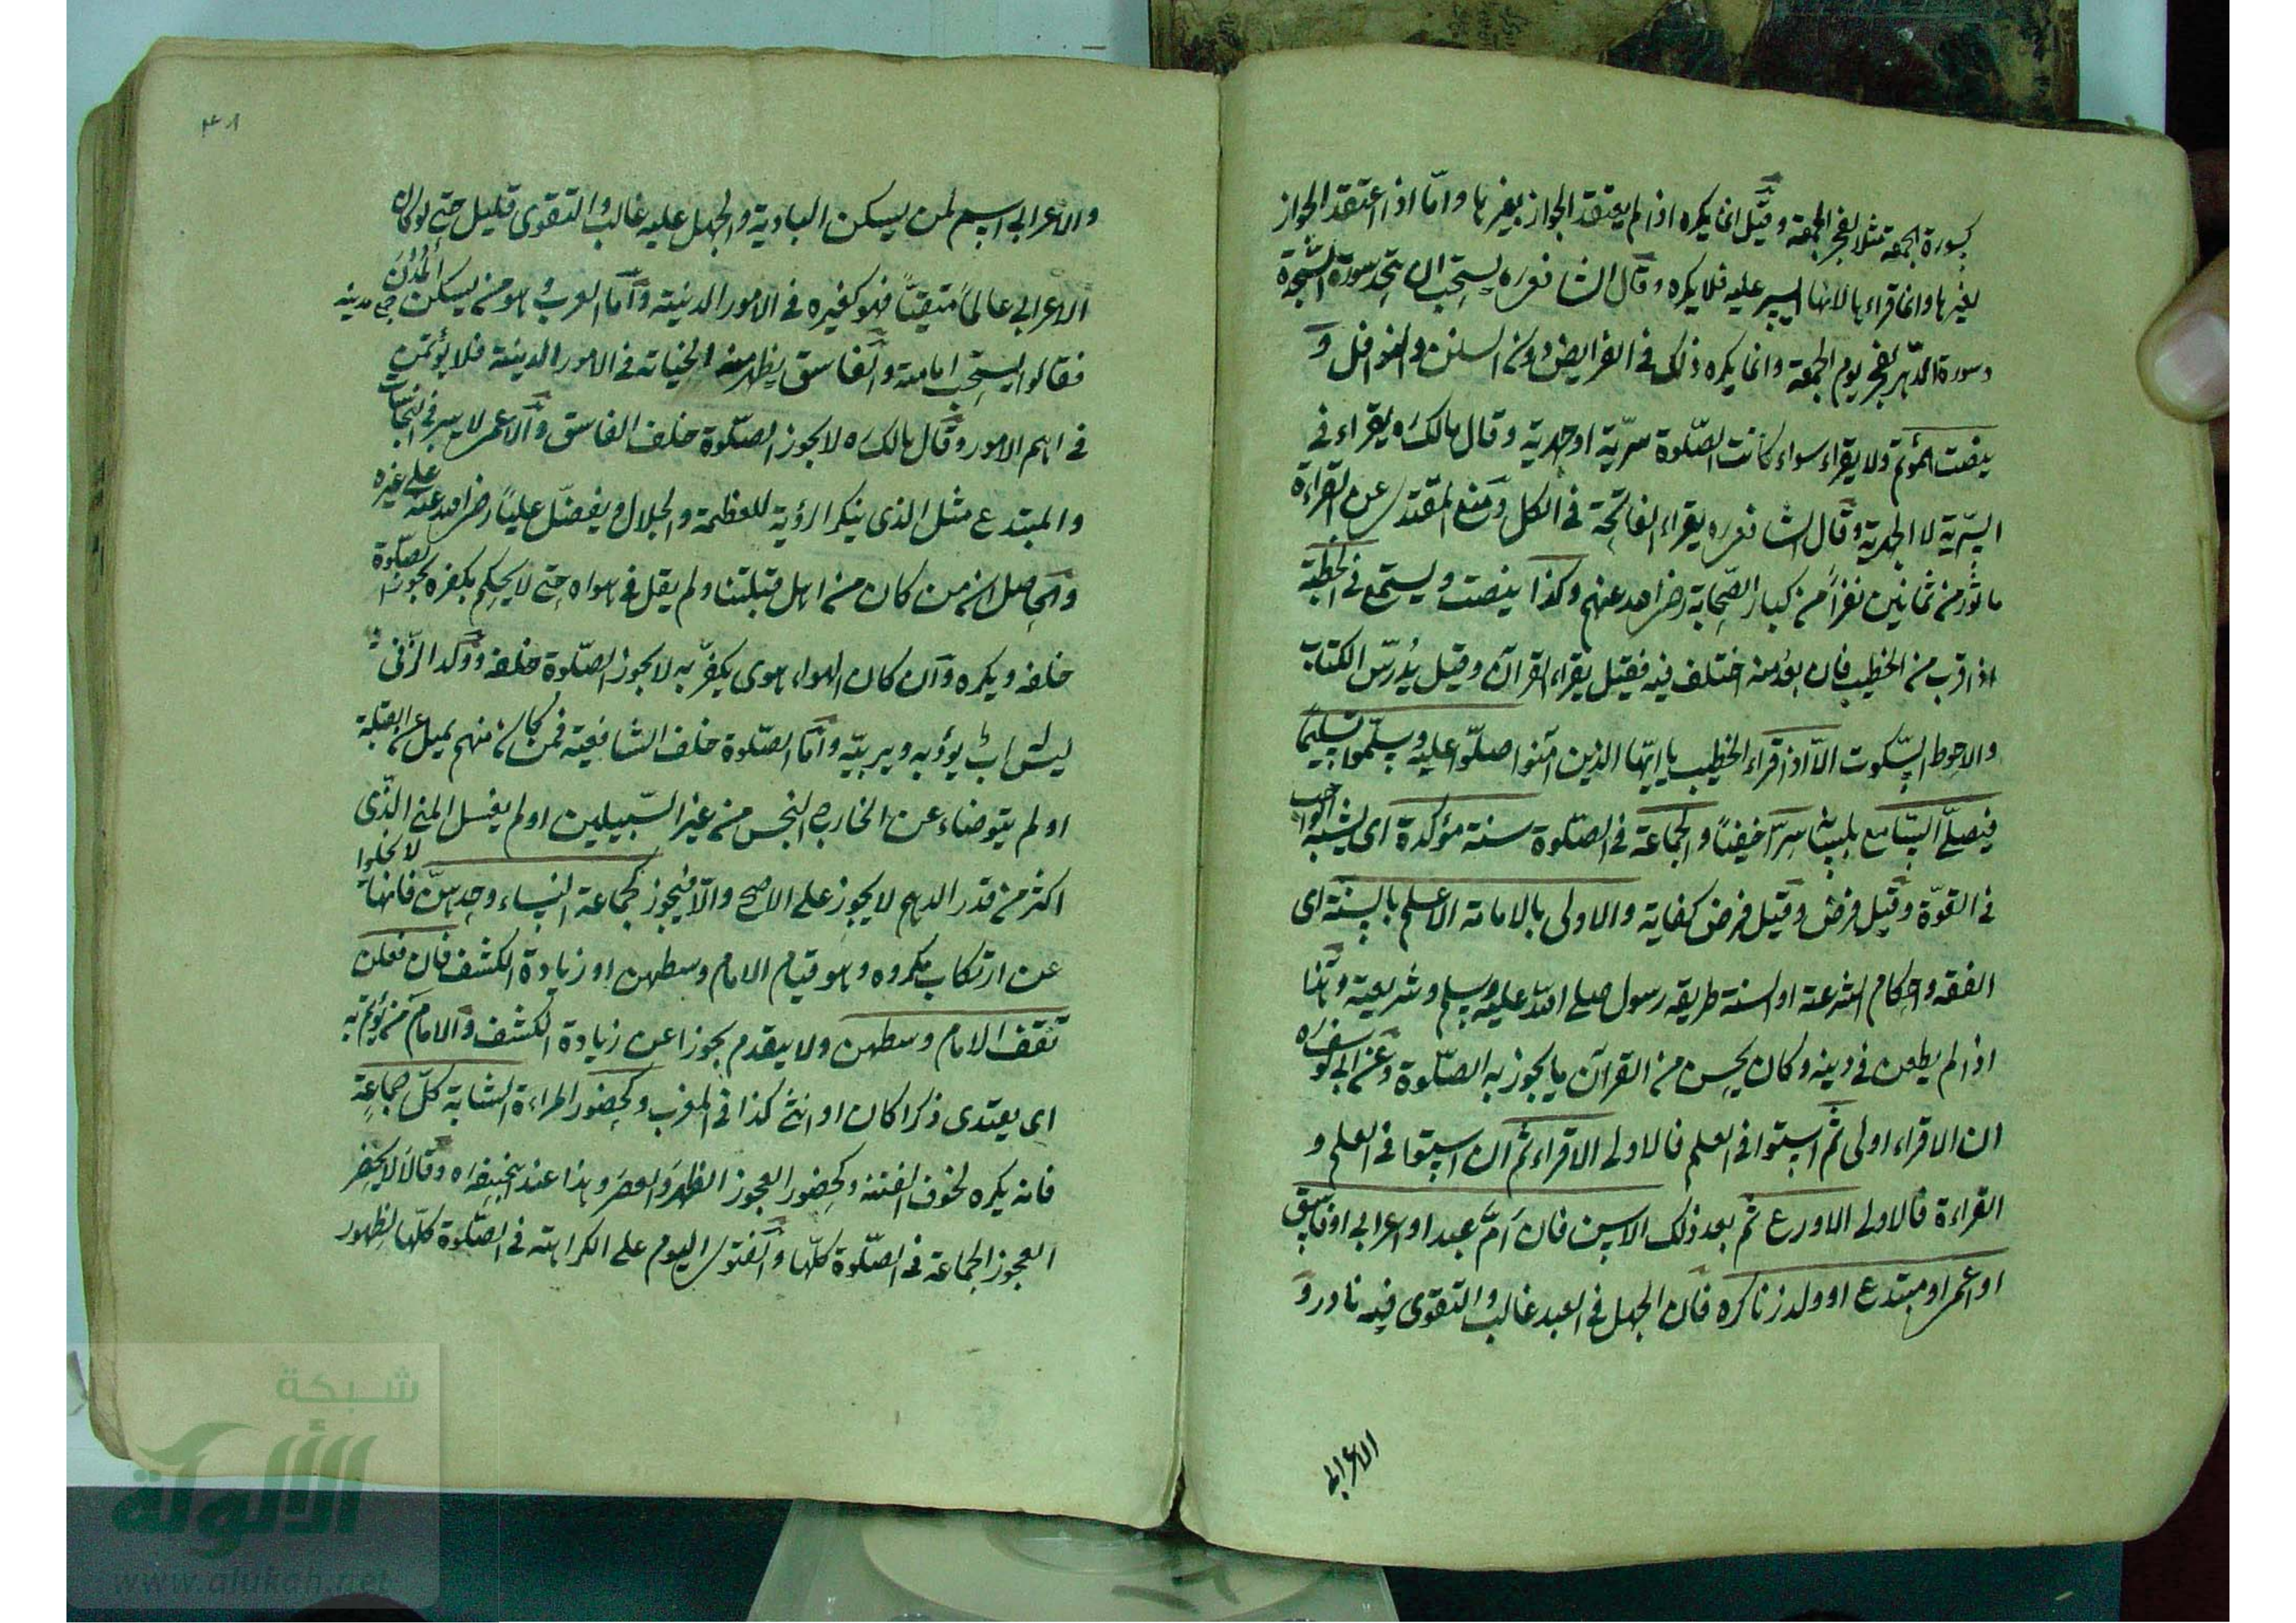 كسورة الجمعة مثلا لفجر الجمعة وقيل انما يكره اذا لم يعتقد الجواز بغيرها واما اذا اعتقد الجواز
بغيرها وانما قراء بها لانها ايسر عليه فلا يكره وقال الشافعي ره يستحب ان يتخذ سورة السجدة
وسورة الدهر لفجر يوم الجمعة وانما يكره ذلك في الفرايض دون السنن والنوافل و
ينصت المؤتم ولا يقراء سواء كانت الصلوة سرية او جهرية وقال مالك ره يقراء في
السرية لا الجهرية وقال الشافعي ره يقراء الفاتحة في الكل ومنع المقتدى عن القراءة
ماثور من ثمانين نفرا من كبار الصحابة رضى الله عنهم وكذا ينصت ويستمع في الخطبة
اذا قرب من الخطيب فان بعد منه اختلف فيه فقيل يقراء القرآن وقيل يدرس الكتاب
والاحوط السكوت الا اذا قراء الخطيب يا ايها الذين آمنوا صلوا عليه وسلموا تسليما
فيصلى السامع سرا خفيفا والجماعة في الصلوة سنة مؤكدة اى يشبه الواجب
في القوة وقيل فرض وقيل فرض كفاية والاولى بالامامة الاعلم بالسنة اى
الفقه واحكام الشرعية او السنة طريقه رسول صلى الله عليه وسلم وشريعته
اذا لم يطعن في دينه وكان يحسن من القرآن ما يجوز به الصلوة وعن ابى يوسف ره
ان الاقراء اولى ثم استوا في العلم فالاولى الاقراء ثم ان استوا في العلم و
القراءة فالاولى الاورع ثم بعد ذلك الاسن فان ام عبد او اعرابى او فاسق
او اعمى او مبتدع او ولد زنا كره فان الجهل في العبد غالب والتقوى فيه نادر و
الاعرابى
٣٨
والاعرابى اسم لمن يسكن البادية والجهل عليه غالب والتقوى قليل حتى لو كان
الاعرابى عالما متقيا فهو كغيره في الامور الدينية واما العرب وهو من يسكن المدن جمع مدينه
فقالوا يستحب امامته والفاسق يظهر منه الخيانه في الامور الدينية فلا يؤتمن
في اهم الامور وقال مالك ره لا يجوز الصلوة خلف الفاسق والاعمى لا يبصر في النجاسات
والمبتدع مثل الذى ينكر الرؤية للعظمة والجلال ويفضل عليا رضى الله عنه على غيره
والحاصل انه من كان من اهل قبلتنا ولم يقل في هواه حتى لا يحكم بكفره يجوز الصلوة
خلفه ويكره وان كان الهواء هوى يكفر به لا يجوز الصلوة خلفه وولد الزنى
ليس له اب يؤدبه ويربيه واما الصلوة خلف الشافعية فمن كان منهم يميل عن القبلة
او لم يتوضاء عن الخارج النجس من غير السبيلين او لم يغسل المنى الذى
اكثر من قدر الدرهم لا يجوز على الاصح والا فيجوز كجماعة النساء وحدهن فانها لا تخلوا
عن ارتكاب مكروه وهو قيام الامام وسطهن او زيادة الكشف فان فعلن
تقف الامام وسطهن ولا يتقدم تجوزا عن زيادة الكشف والامام من يؤتم به
اى يقتدى ذكرا كان او انثى كذا في المغرب وكحضور المراءة الشابة كل جماعة
فانه يكره لخوف الفتنه وكحضور العجوز الظهر والعصر وهذا عند ابيحنيفه ره وقالا يحضر
العجوز الجماعة في الصلوة كلها والفتوى اليوم على الكراهته في الصلوة كلها لظهور
شبكة
الألوكة
www.alukah.net